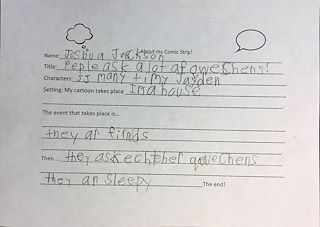 About my Comic Strip!
Name: Joshua Jackson
Title: Peple ask a lot of qwechens!
Characters: JJ many timy Jayden
Setting: My cartoon takes place in a house
The event that takes place is...
they ar firnds
Then... they ask echther qwechens
they ar sleepy The end!